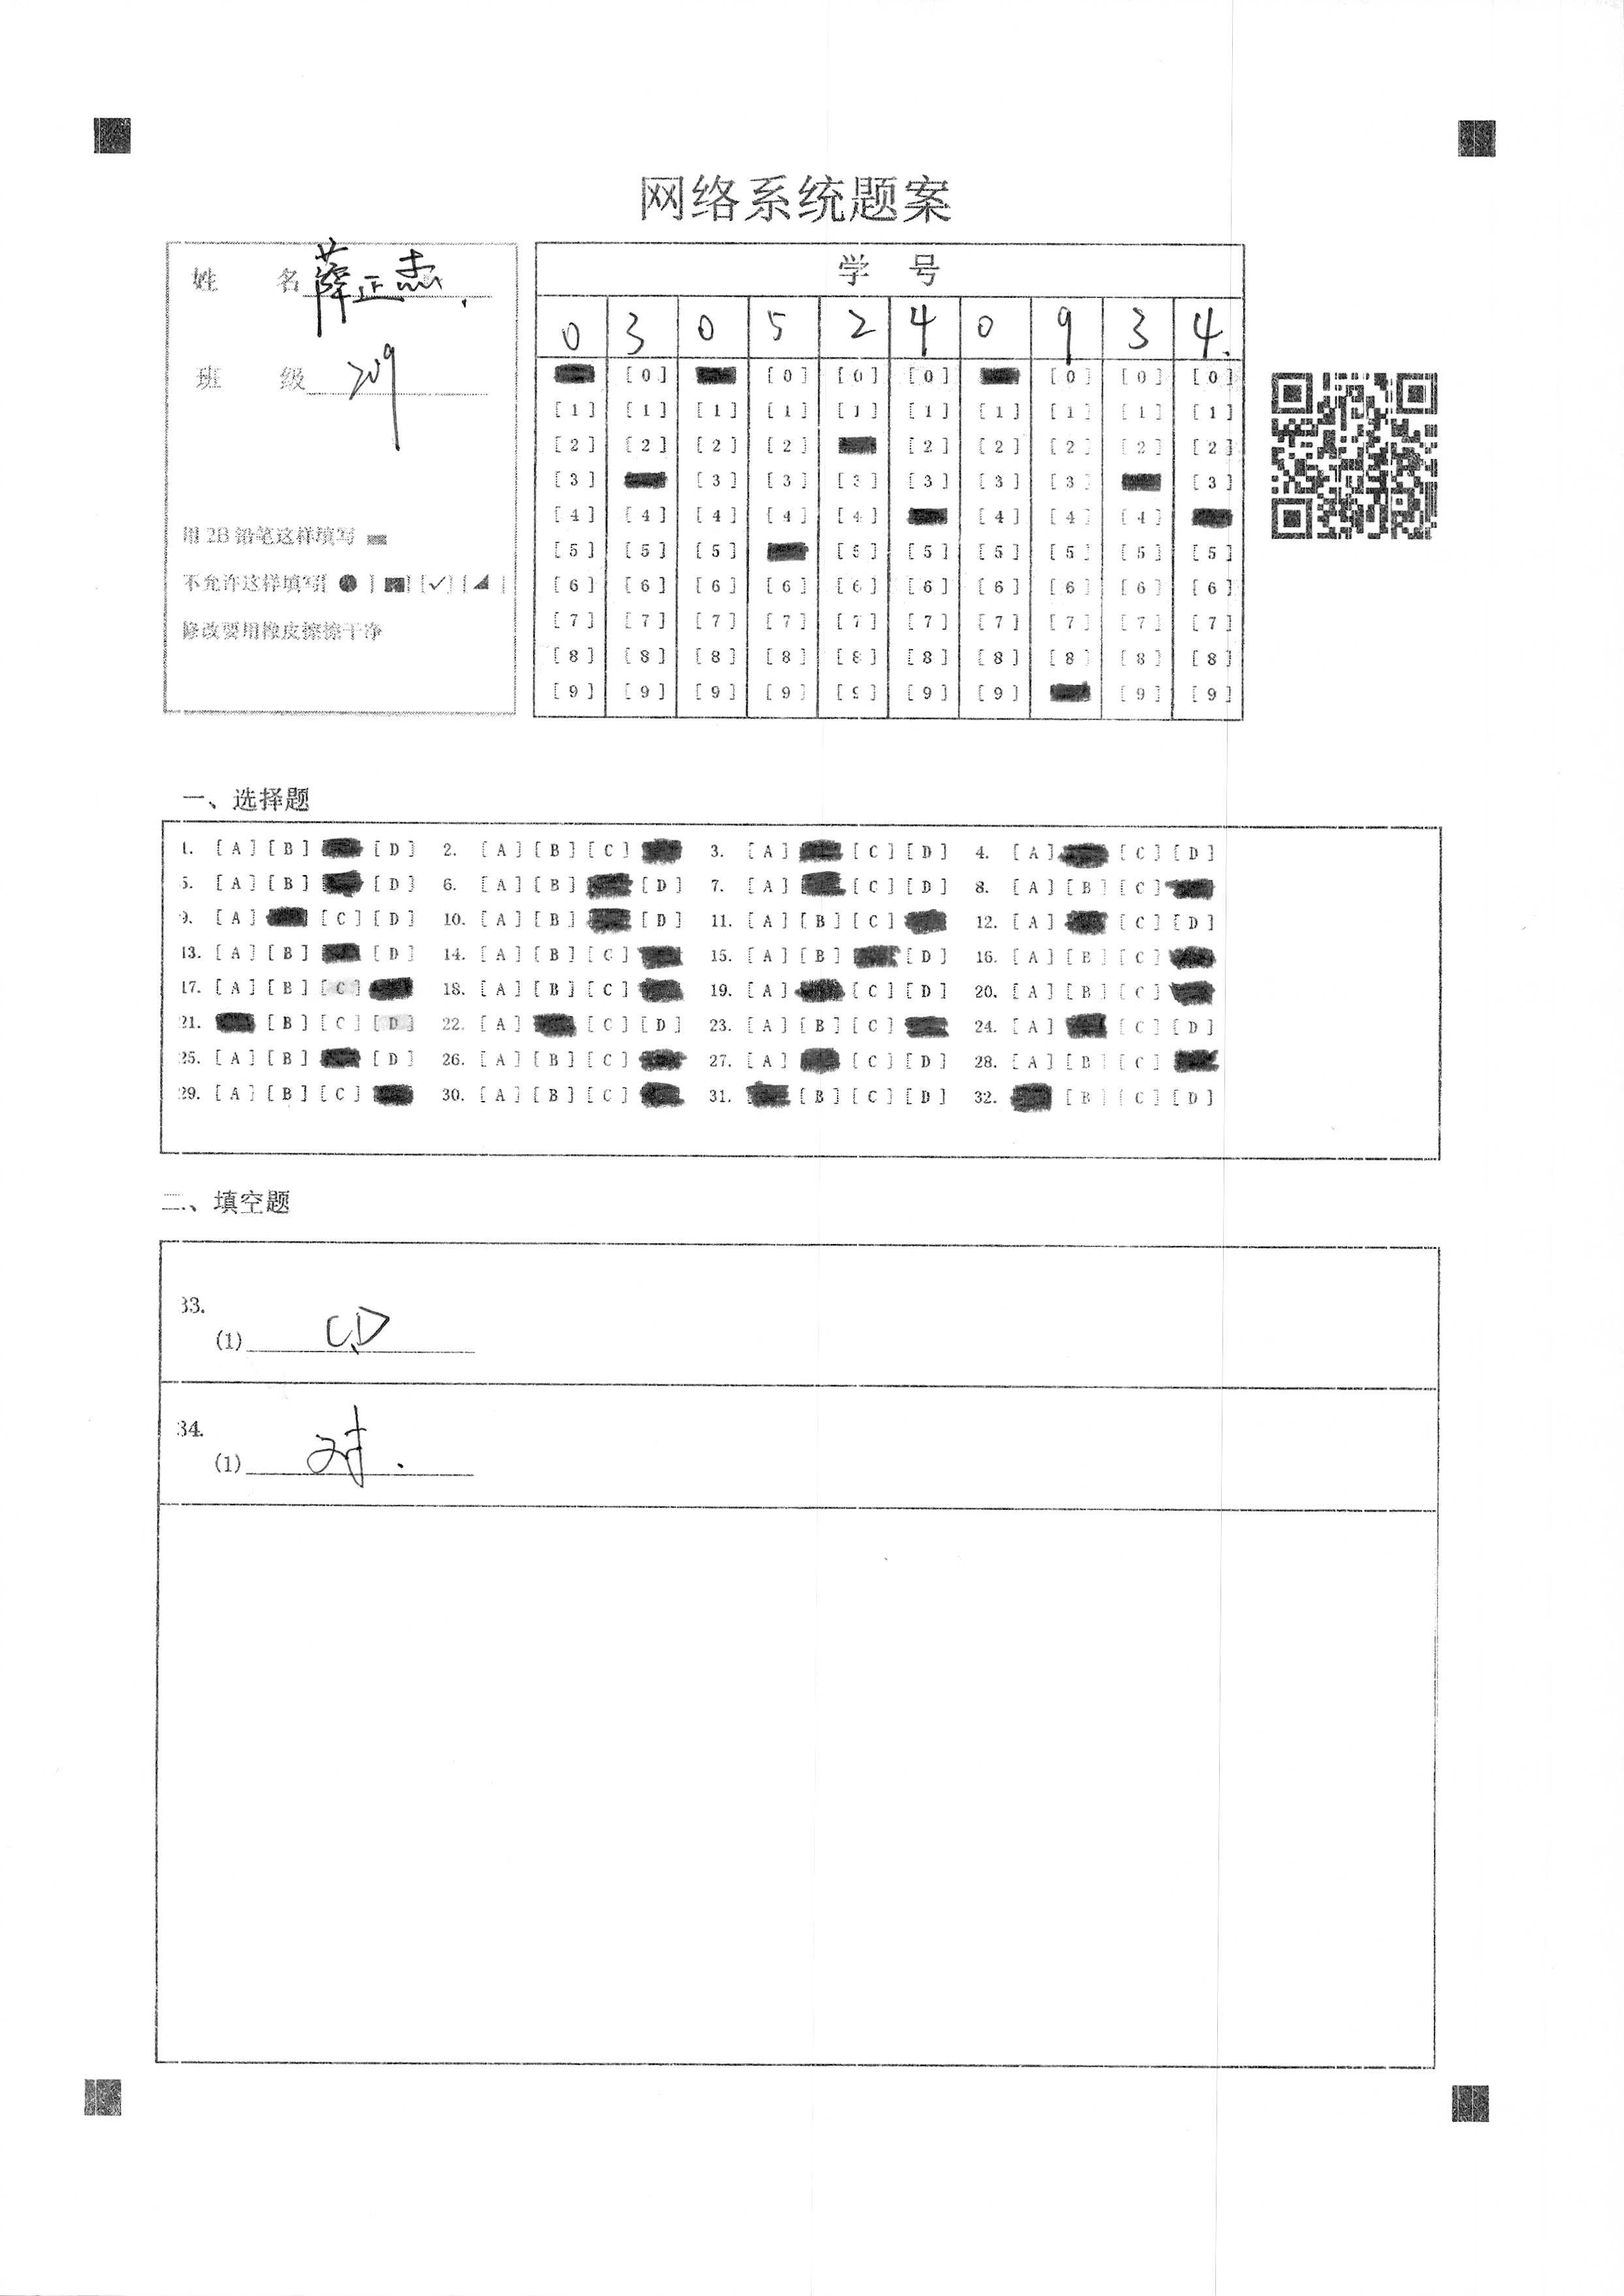 网络系统题案
姓 名 薛正杰.
班 级 209
用 2B 铅笔这样填写
不允许这样填写[ ● ] [■] [✓] [◢ ]
修改要用橡皮擦擦干净
学 号
0 3 0 5 2 4 0 9 3 4.
[0] [0] [0] [0] [0] [0] [0]
[1] [1] [1] [1] [1] [1] [1] [1] [1] [1]
[2] [2] [2] [2] [2] [2] [2] [2] [2]
[3] [3] [3] [3] [3] [3] [3] [3]
[4] [4] [4] [4] [4] [4] [4] [4]
[5] [5] [5] [5] [5] [5] [5] [5] [5]
[6] [6] [6] [6] [6] [6] [6] [6] [6] [6]
[7] [7] [7] [7] [7] [7] [7] [7] [7] [7]
[8] [8] [8] [8] [8] [8] [8] [8] [8] [8]
[9] [9] [9] [9] [9] [9] [9] [9] [9]
一、选择题
1. [A] [B] [D] 2. [A] [B] [C] 3. [A] [C] [D] 4. [A] [C] [D]
5. [A] [B] [D] 6. [A] [B] [D] 7. [A] [C] [D] 8. [A] [B] [C]
9. [A] [C] [D] 10. [A] [B] [D] 11. [A] [B] [C] 12. [A] [C] [D]
13. [A] [B] [D] 14. [A] [B] [C] 15. [A] [B] [D] 16. [A] [B] [C]
17. [A] [B] [C] 18. [A] [B] [C] 19. [A] [C] [D] 20. [A] [B] [C]
21. [B] [C] [D] 22. [A] [C] [D] 23. [A] [B] [C] 24. [A] [C] [D]
25. [A] [B] [D] 26. [A] [B] [C] 27. [A] [C] [D] 28. [A] [B] [C]
29. [A] [B] [C] 30. [A] [B] [C] 31. [B] [C] [D] 32. [B] [C] [D]
二、填空题
33.
(1) C、D
34.
(1) 对.